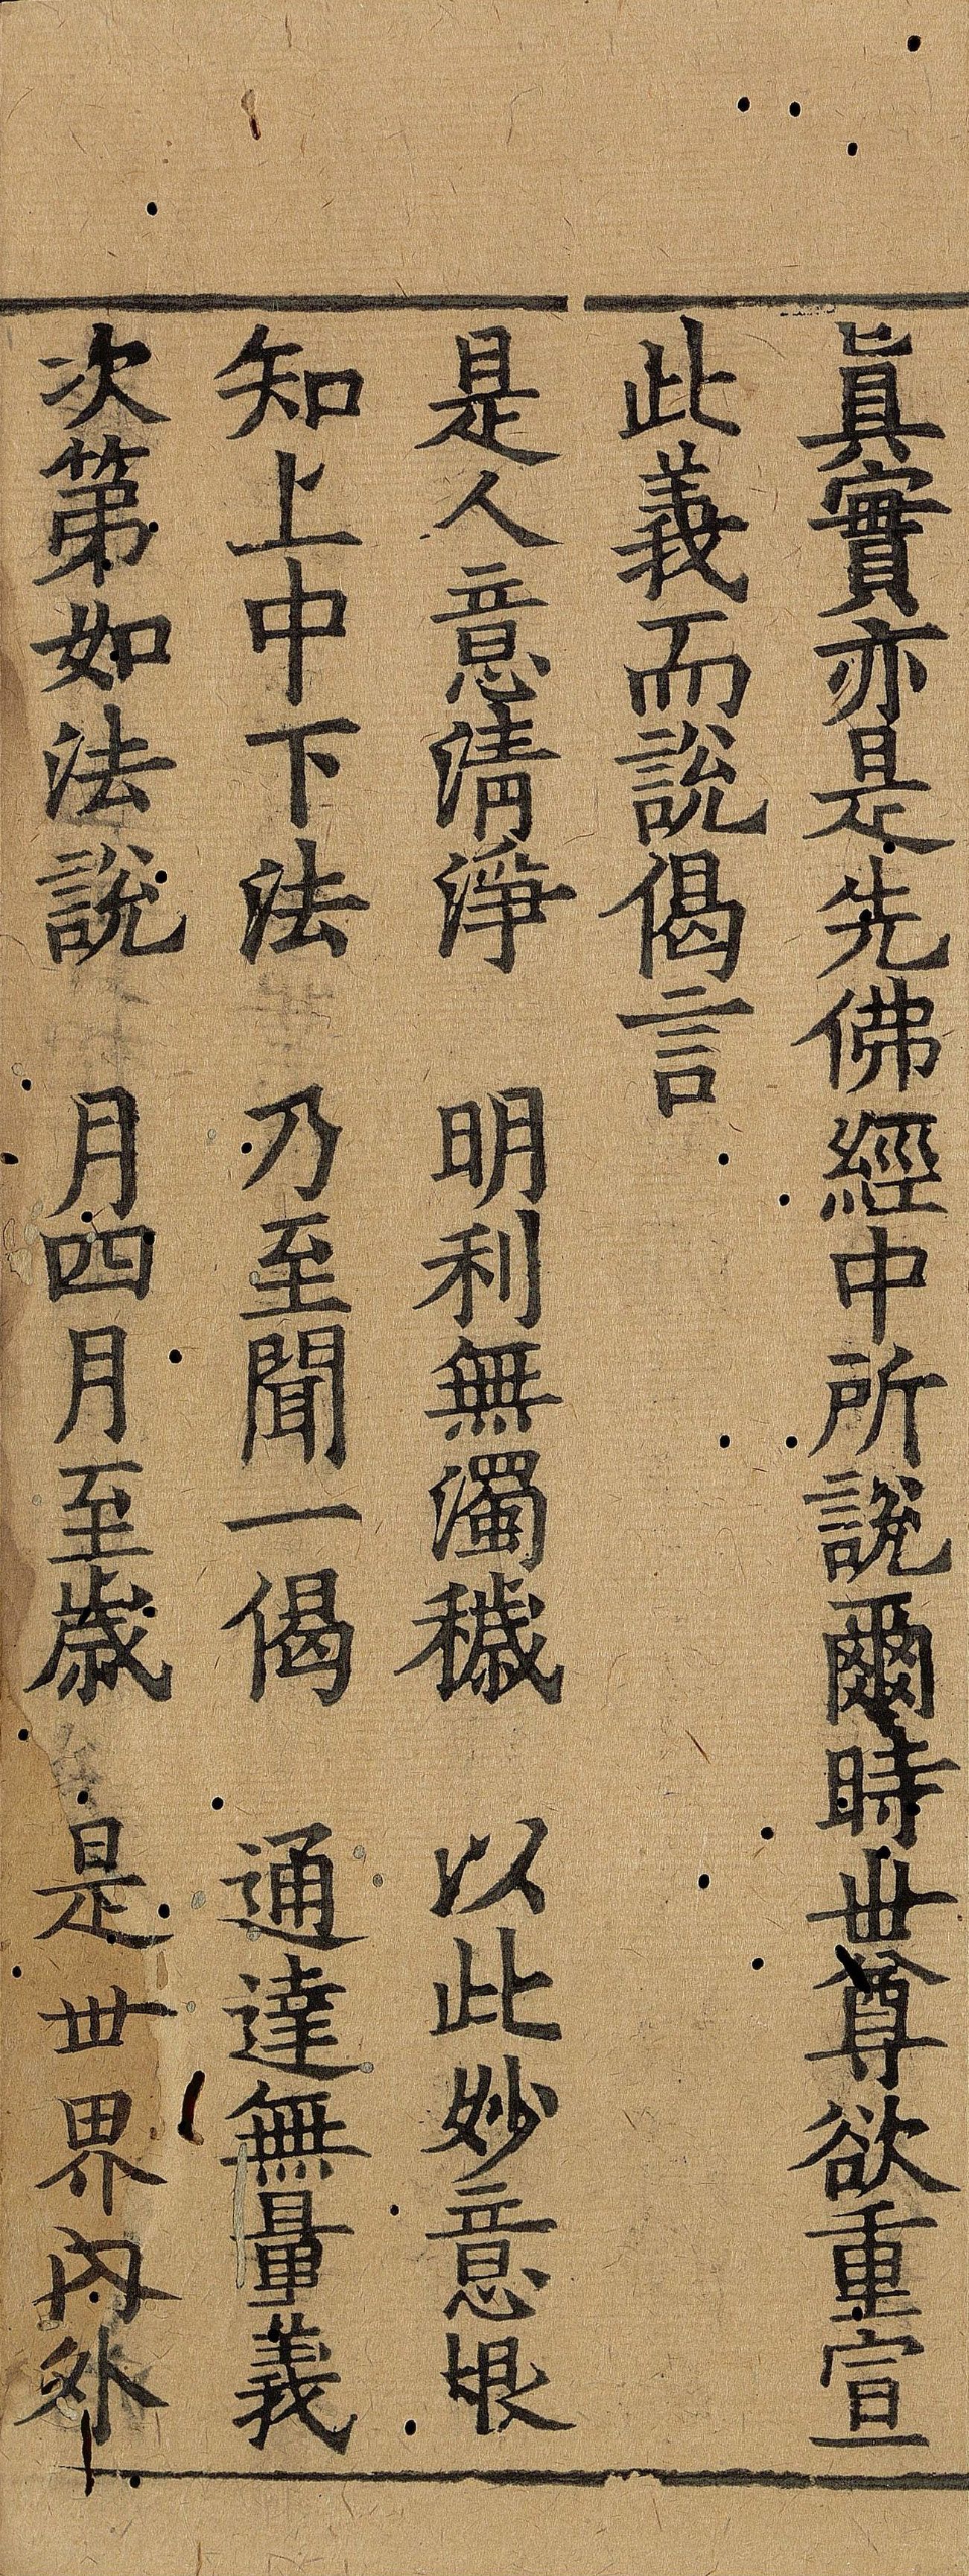 眞實亦是先佛經中所說爾時世尊欲重宣
此義而說偈言
是人意清淨　明利無濁穢　以此妙意根
知上中下法　乃至聞一偈　通達無量義
次第如法說　月四月至歲　是世界內外